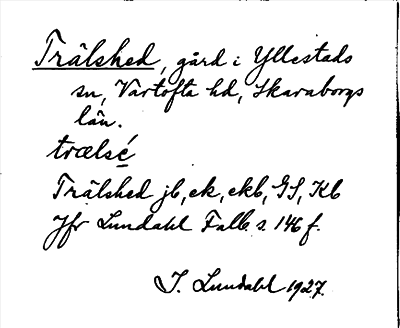 Trälshed, gård i Yllestads
sn, Vartofta hd, Skaraborgs
län.
trælsé
Trälshed jb, ek, ekb, GS, Kb
Jfr Lundahl Falb s. 146 f.
I. Lundahl 1927.